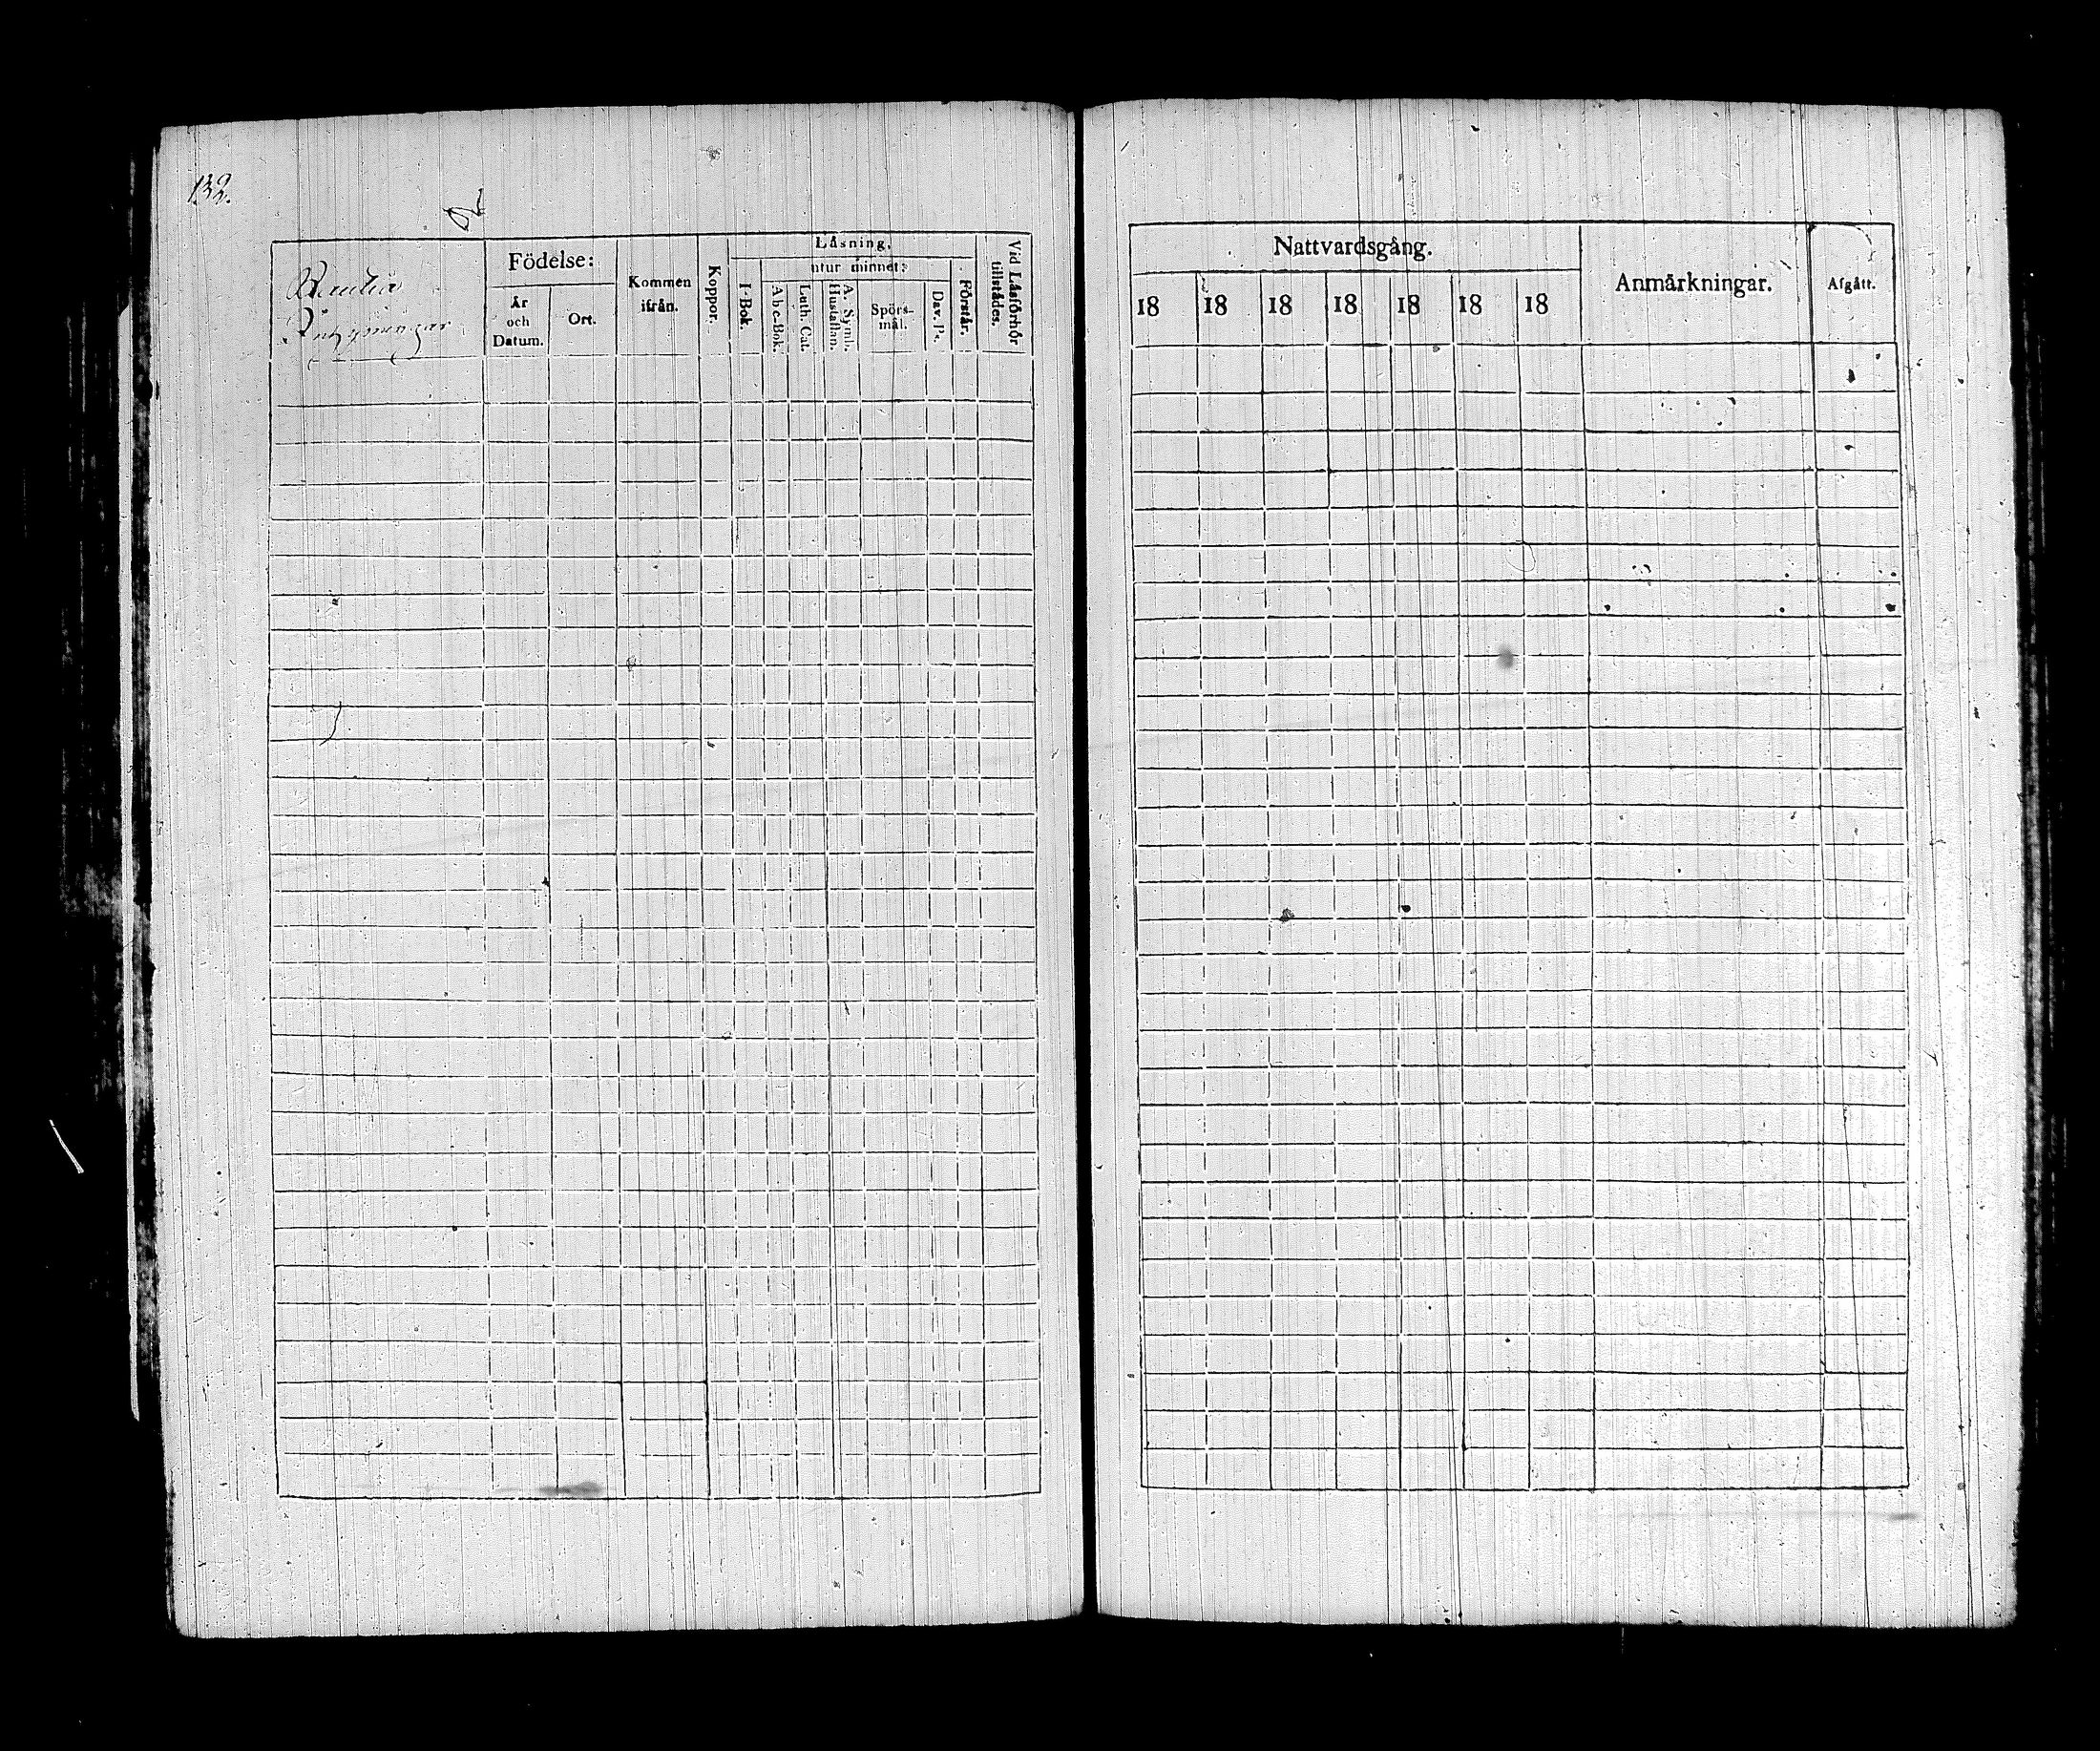 132.
Födelse:
År
och
Datum.
Ort.
Kommen
ifrån.
Koppor.
Läsning,
utur minnet:
I-Bok.
Abc-Bok.
Luth. Cat.
A. Symb.
Hustaflan.
Spörs-
mål.
Dav. Ps.
Förstår.
Vid Läsförhör
tillstädes.
Nattvardsgång.
18 18 18 18 18 18 18
Anmärkningar.
Afgått.